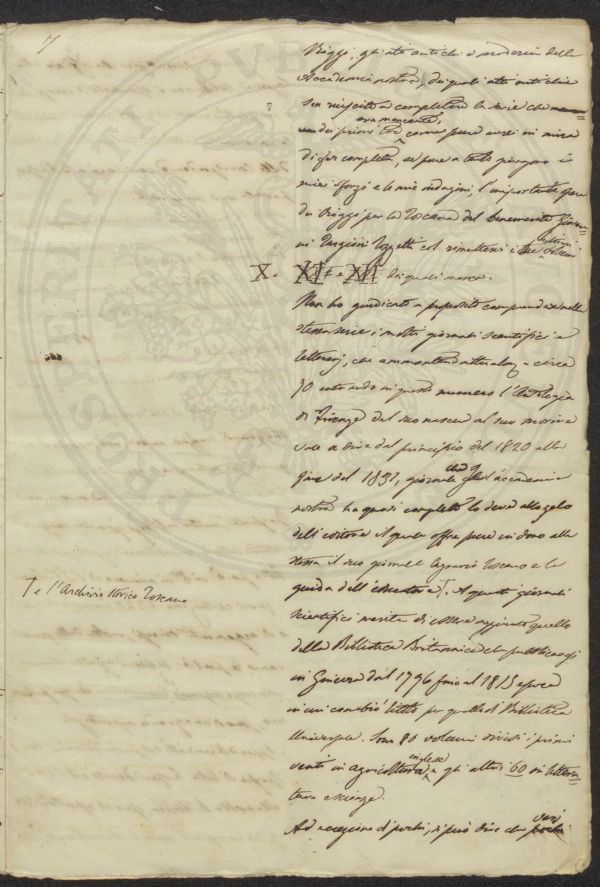 7
Viaggi, gli atti antichi e moderni della
Accademia nostra, dei quali atti antichi
son riuscito a completare la serie che
dei primi era mancante, come pure avrei in mira
di far completa, se pure a tanto giungono i
miei sforzi e le mie indagini, l'importante opera
dei Viaggi per la Toscana del benemerito Giovan=
ni Targioni Tozzetti col rimettervi i due ultimi volumi
X. XI e XII dei quali manca.
Non ho giudicato a proposito comprendere nella
stessa serie i molti giornali scientifici e
letterarj, che ammontano a circa
70 entrando in questo numero l'Antologia
di Firenze dal suo nascere al suo morire
vale a dire dal principio del 1820 alla
fine del 1832, giornale che l'accademia
nostra ha quasi completo lo deve allo zelo
dell'editore il quale offre pure in dono alla
stessa il suo giornale Agrario Toscano e la
guida dell'educatore †. A questi giornali
† e l'Archivio storico Toscano
scientifici merita di essere aggiunto quello
della Biblioteca Britannica che pubblicossi
in Ginevra dal 1796 fino al 1815 epoca
in cui cambiò titolo per quello di Biblioteca
Universale. Sono 80 volumi divisi i primi
venti in agricoltura inglese e gli altri 60 in lettera=
tura e scienze.
Ad eccezione di pochi, si può dire che varj